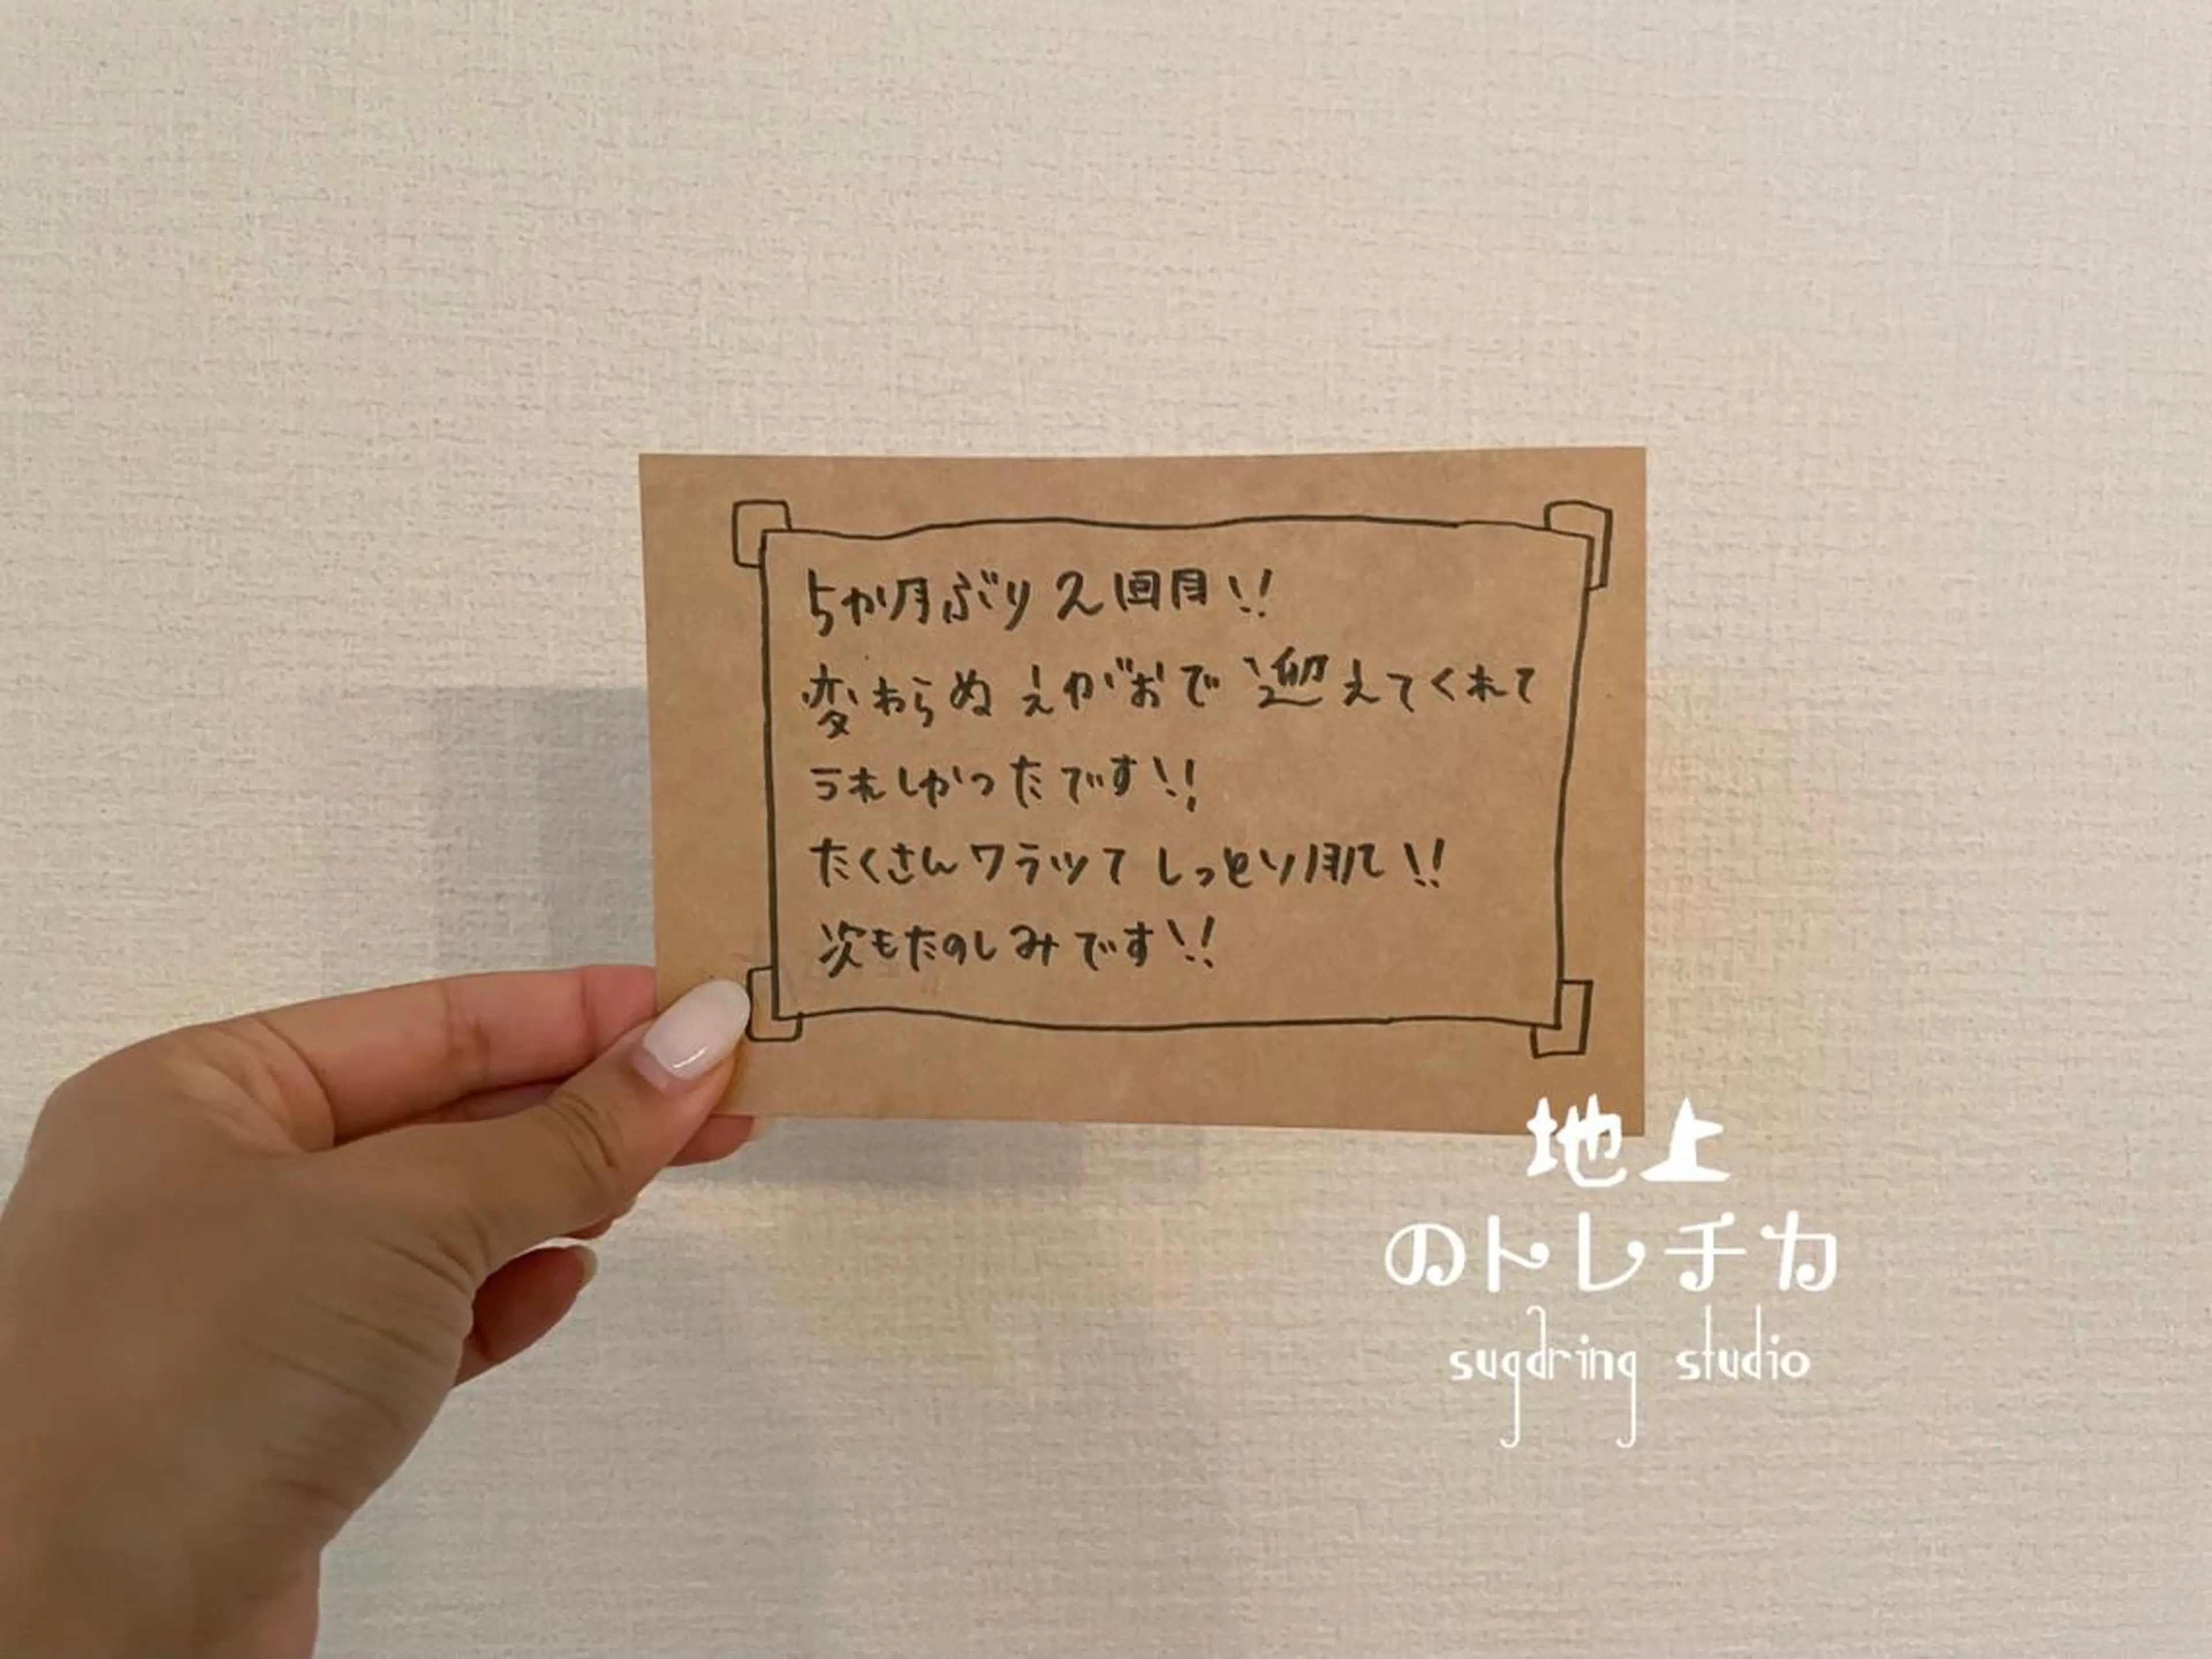 5か月ぶり2回目!!
変わらぬえがおで迎えてくれて
うれしかったです!!
たくさんワラッてしっとり肌!!
次もたのしみです!!
地上
のトレチカ
sugdring studio